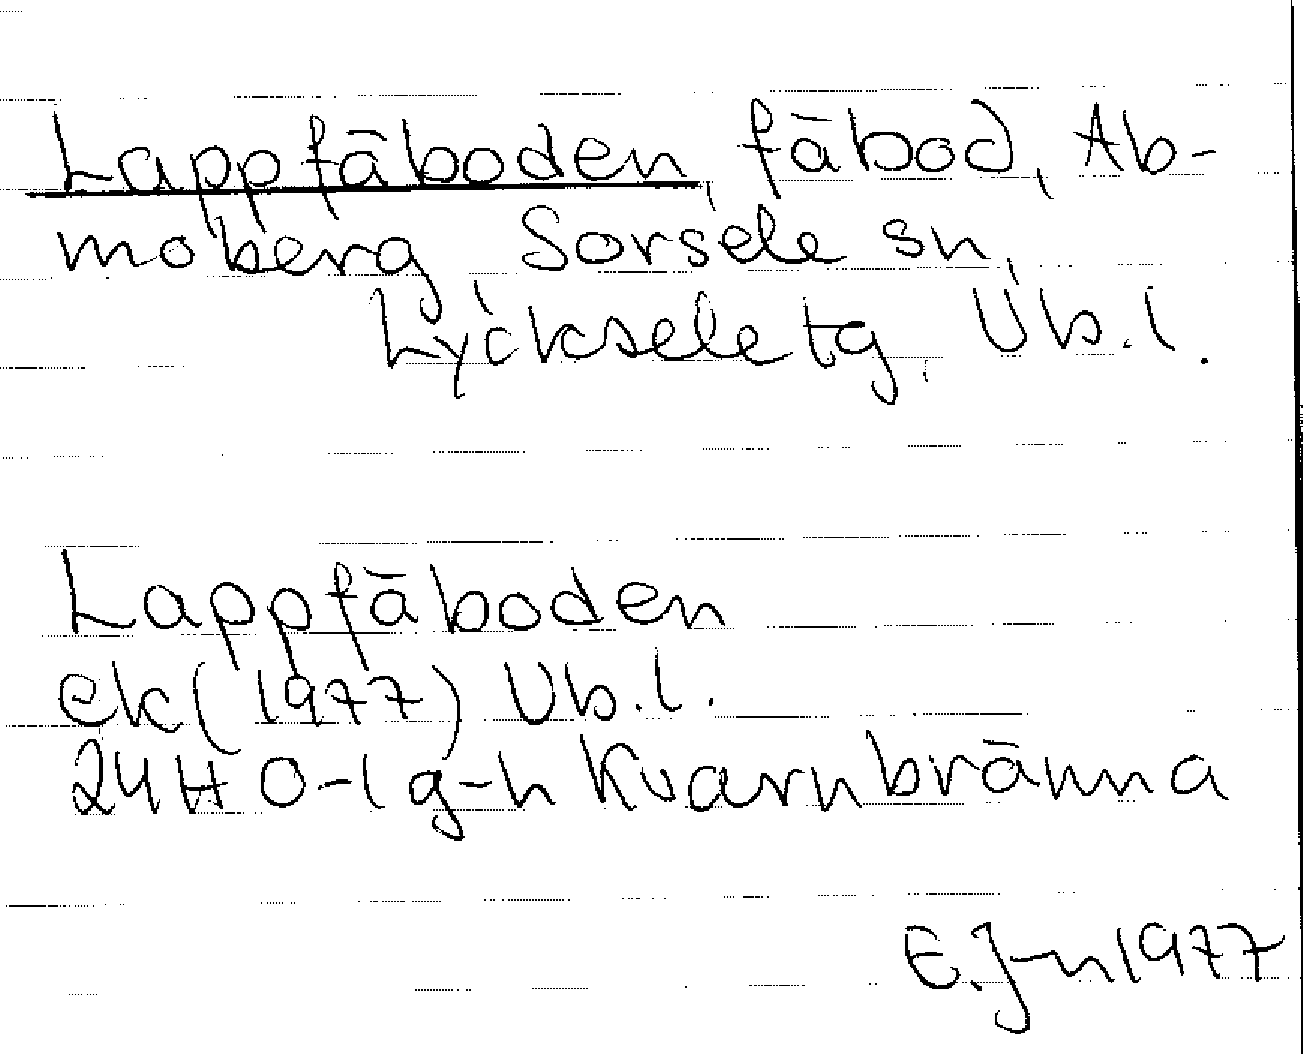 Lappfäboden, fäbod, Ab-
moberg, Sorsele sn,
Lycksele tg, Vb.l.
Lappfäboden
ek (1977) Vb.l.
24H 0-1 g-h Kvarnbränna
E.J-n 1977